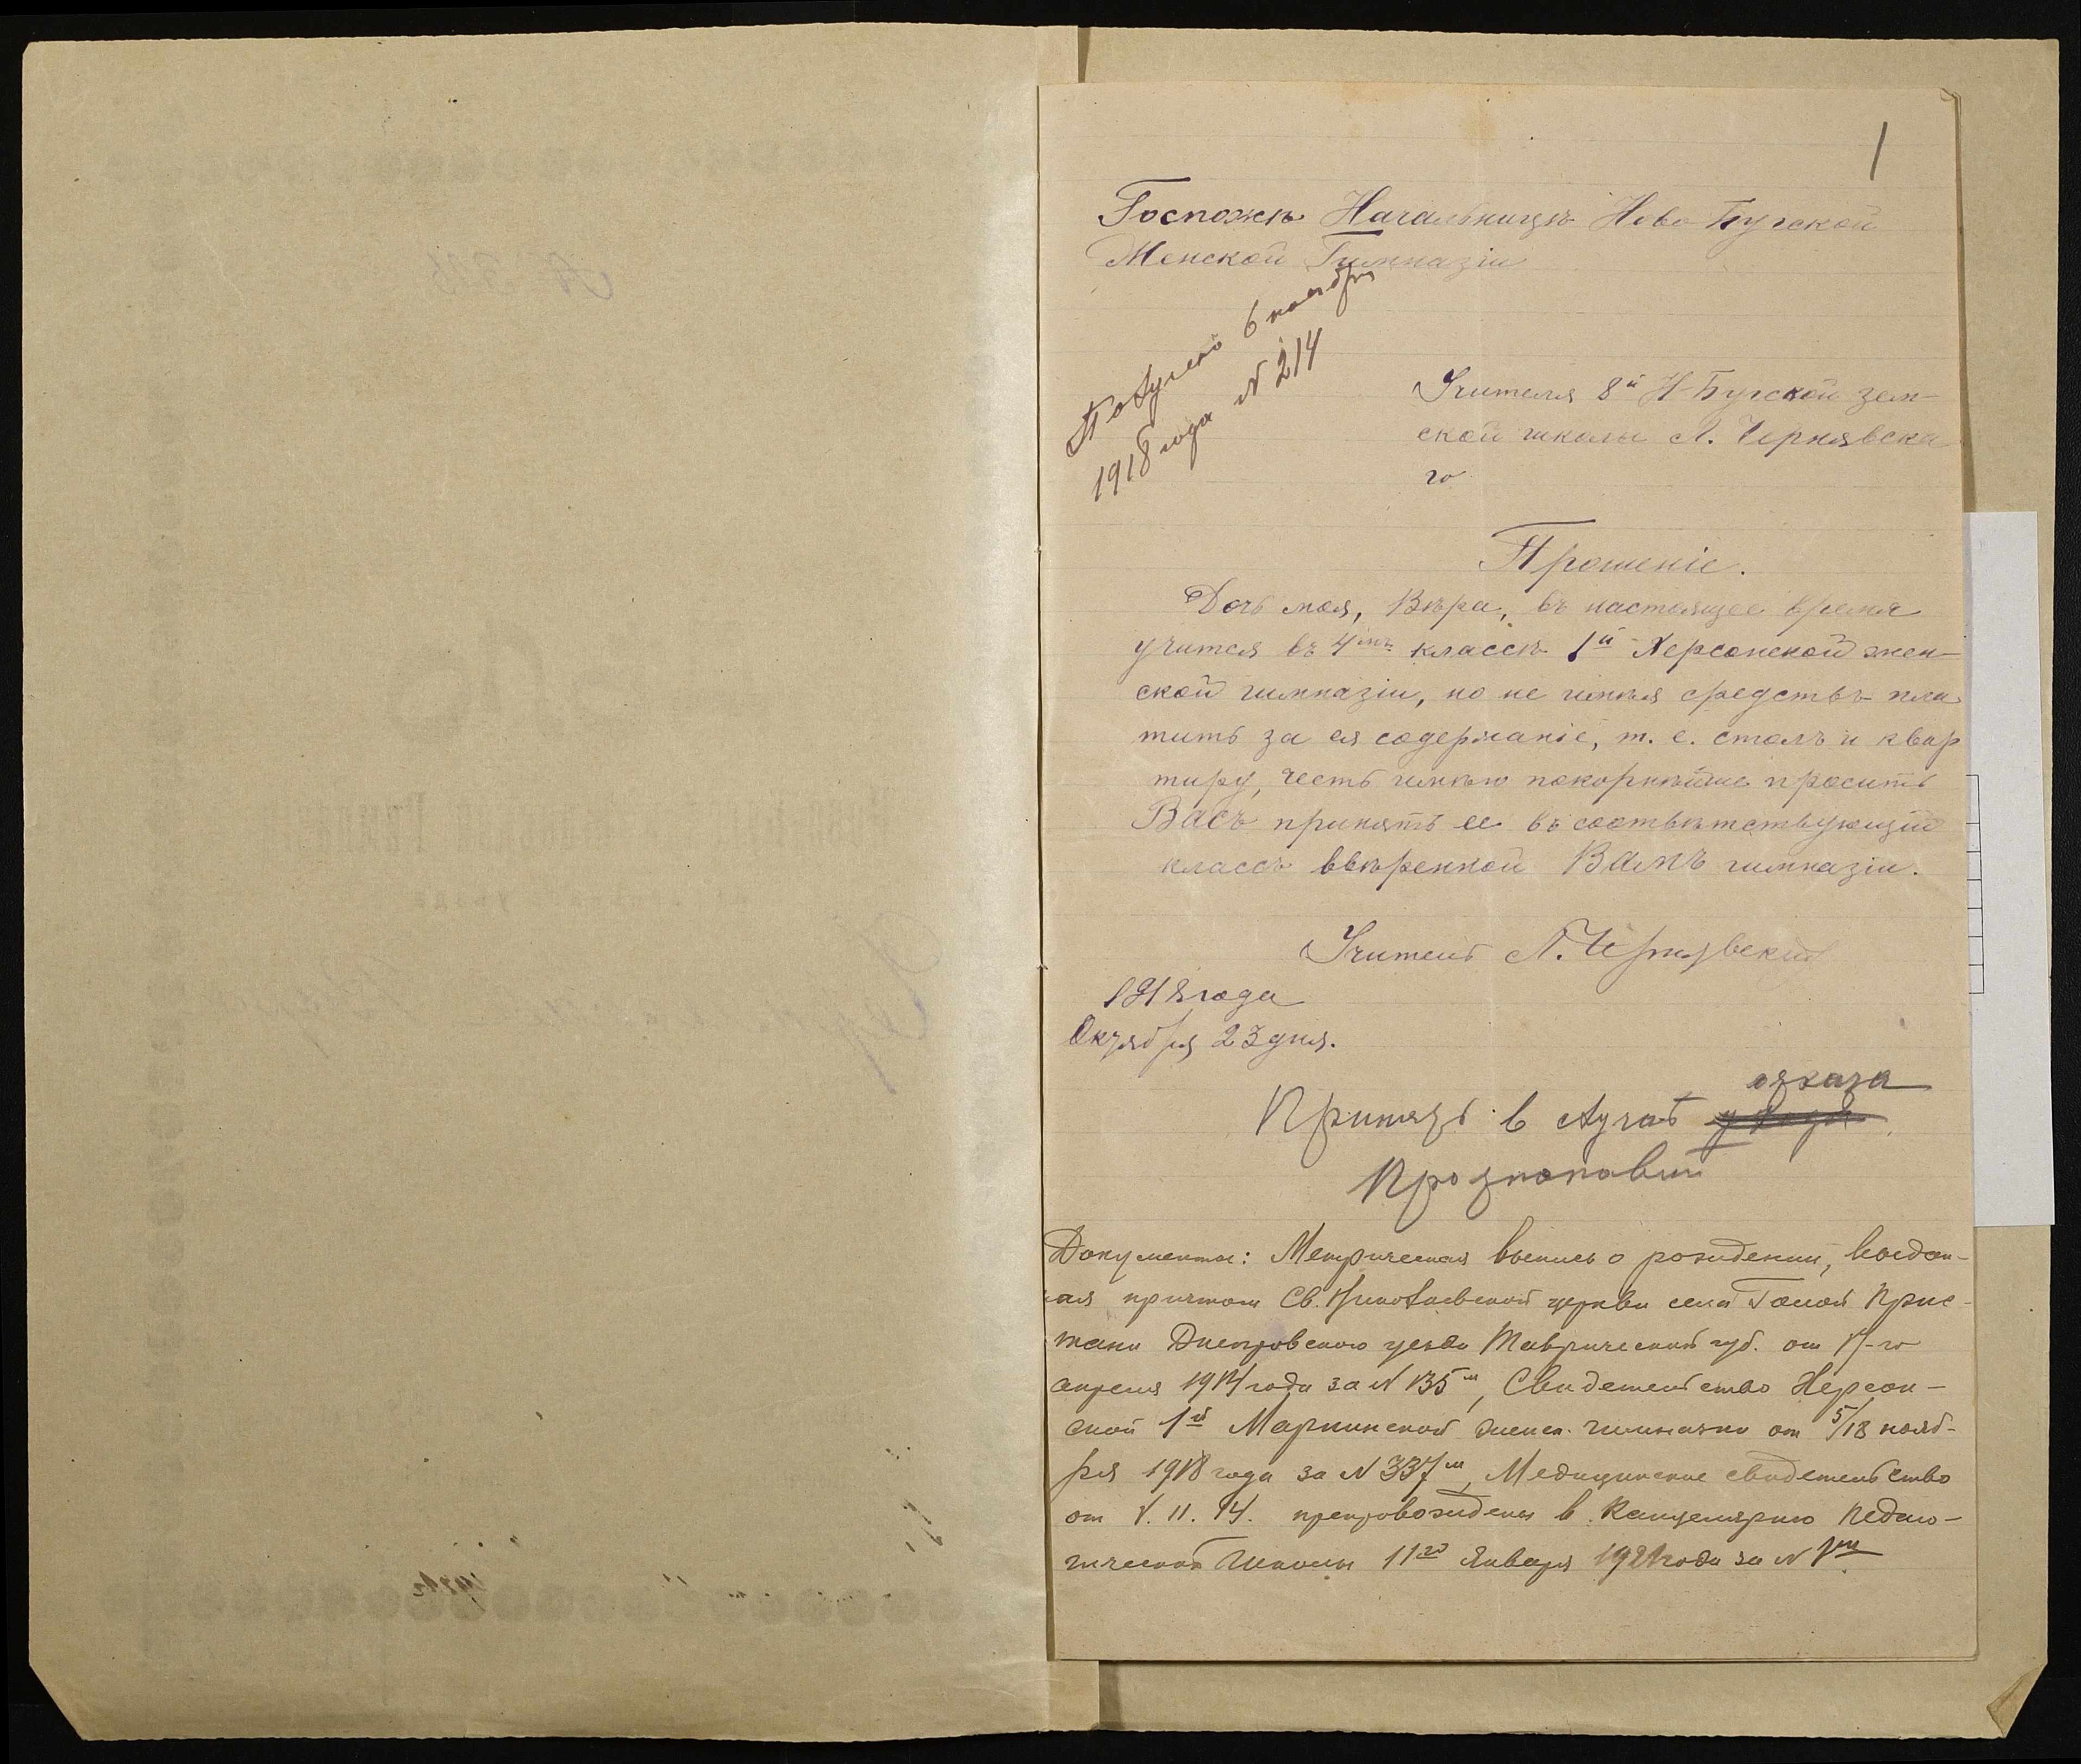 1
Госпожѣ Начальницѣ Ново-Бугской
Женской Гимназіи
Получено 6 ноября
1918 года № 214
Учителя 8й Н-Бугской зем-
ской школы Л. Чернявска
го
Прошеніе.
Дочь моя, Вѣра, въ настоящее время
учится въ 4мъ классѣ 1й Херсонской жен-
ской гимназіи, но не имѣя средствъ пла
тить за ея содержаніе, т. е. столъ и квар
тиру, честь имѣю покорнѣйше просить
Васъ принять ее въ соотвѣтствующій
классъ ввѣренной Вамъ гимназіи.
Учитель Л. Чернявский
1918 года
Октября 23 дня.
отказа
Принять в случаѣ
Документы: Метрическая выпись о рождении, выдан-
ная причтом Св. Николаевской церкви села Голой Прис-
тани Днепровского уезда Таврической губ. от
апреля года за № 135м, Свидетельство Херсон-
ской 1й Мариинской женск. гимназии от 5/18 нояб-
ря 1918 года за № 337м, Медицинское свидетельство
от препровождены в Канцелярию Педаго-
гической Школы 11го Января 1921 года за №